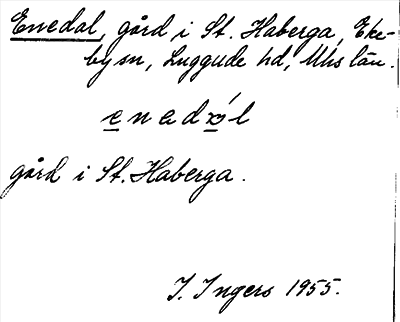 Enedal, gård i St. Haberga, Eke-
by sn, Luggude hd, Mhs län.
enedál
gård i St. Haberga.
I. Ingers 1955.